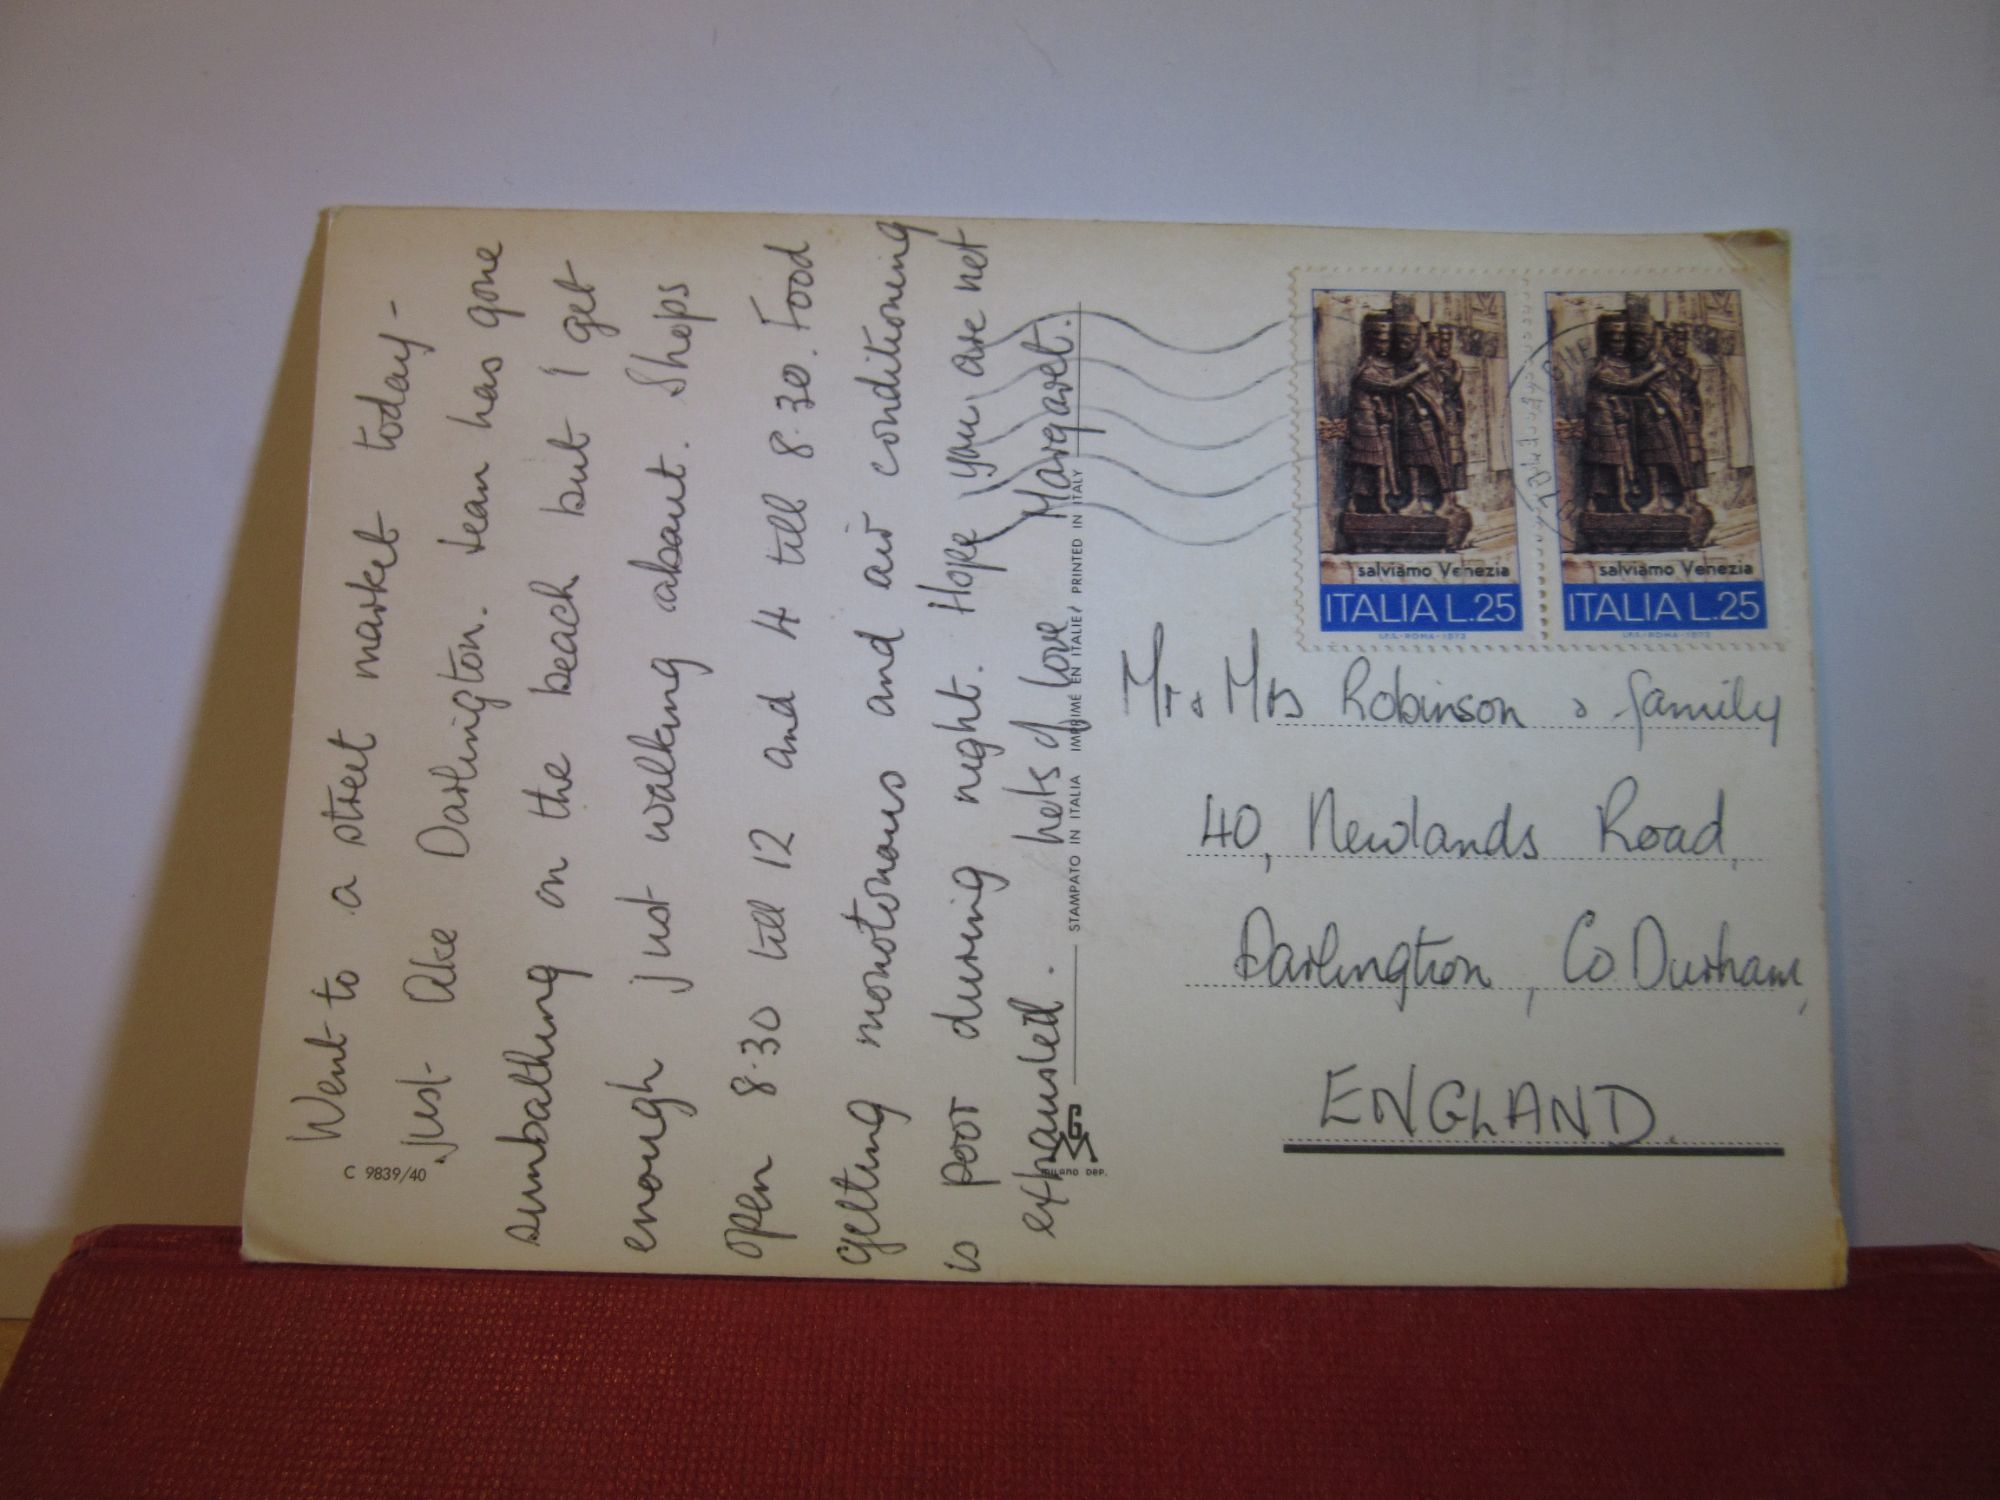 Went to a street market today -
just like Darlington. Jean has gone
sunbathing on the beach but I get
enough just walking about. Shops
open 8.30 till 12 and 4 till 8.30. Food
getting monotonous and air conditioning
is poor during night. Hope you are not
exhausted. Lots of love Margaret.
C 9839/40
STAMPATO IN ITALIA IMPRIMÉ EN ITALIE / PRINTED IN ITALY
MILANO DEP.
salviamo Venezia
ITALIA L.25
I.P.S.-ROMA-1973
salviamo Venezia
ITALIA L.25
I.P.S.-ROMA-1973
Mr & Mrs Robinson & family
40, Newlands Road,
Darlington, Co Durham,
ENGLAND.